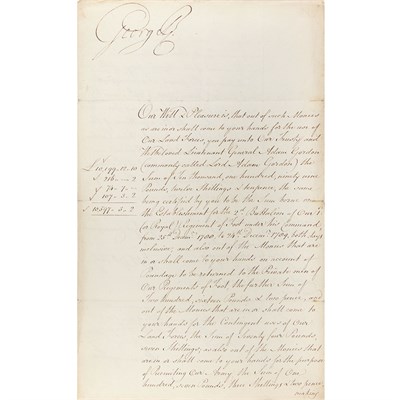 George R.
Our Will & Pleasure is, that out of such Monies
as are or shall come to your hands for the use of
Our Land Forces, you pay unto Our Trusty and
Welbeloved Lieutenant General Adam Gordon
(commonly called Lord Adam Gordon) the
Sum of Ten Thousand, one hundred, ninety nine
Pounds, twelve Shillings & tenpence, the same
being certified by you to be the Sum borne on
the Establishment for the 2d. Battalion of Our 1st
(or Royal) Regiment of Foot under his Command,
from 25th to 24th 1789, both days
inclusive; and also out of the Monies that are
or shall come to your hands on account of
Poundage to be returned to the Private men of
Our Regiments of Foot the further Sum of
Two hundred, sixteen Pounds & two pence, and
out of the Monies that are or shall come to
your hands for the Contingent uses of Our
Land Forces, the Sum of Seventy four Pounds,
seven Shillings, as also out of the Monies that
are or shall come to your hands for the purpose
of Recruiting Our Army the Sum of One
hundred, seven Pounds, three Shillings & two pence,
making
£10,199.12.10
£ 216.-.2
£ 74.7.-
£ 107.3.2
£ 10597.3.2